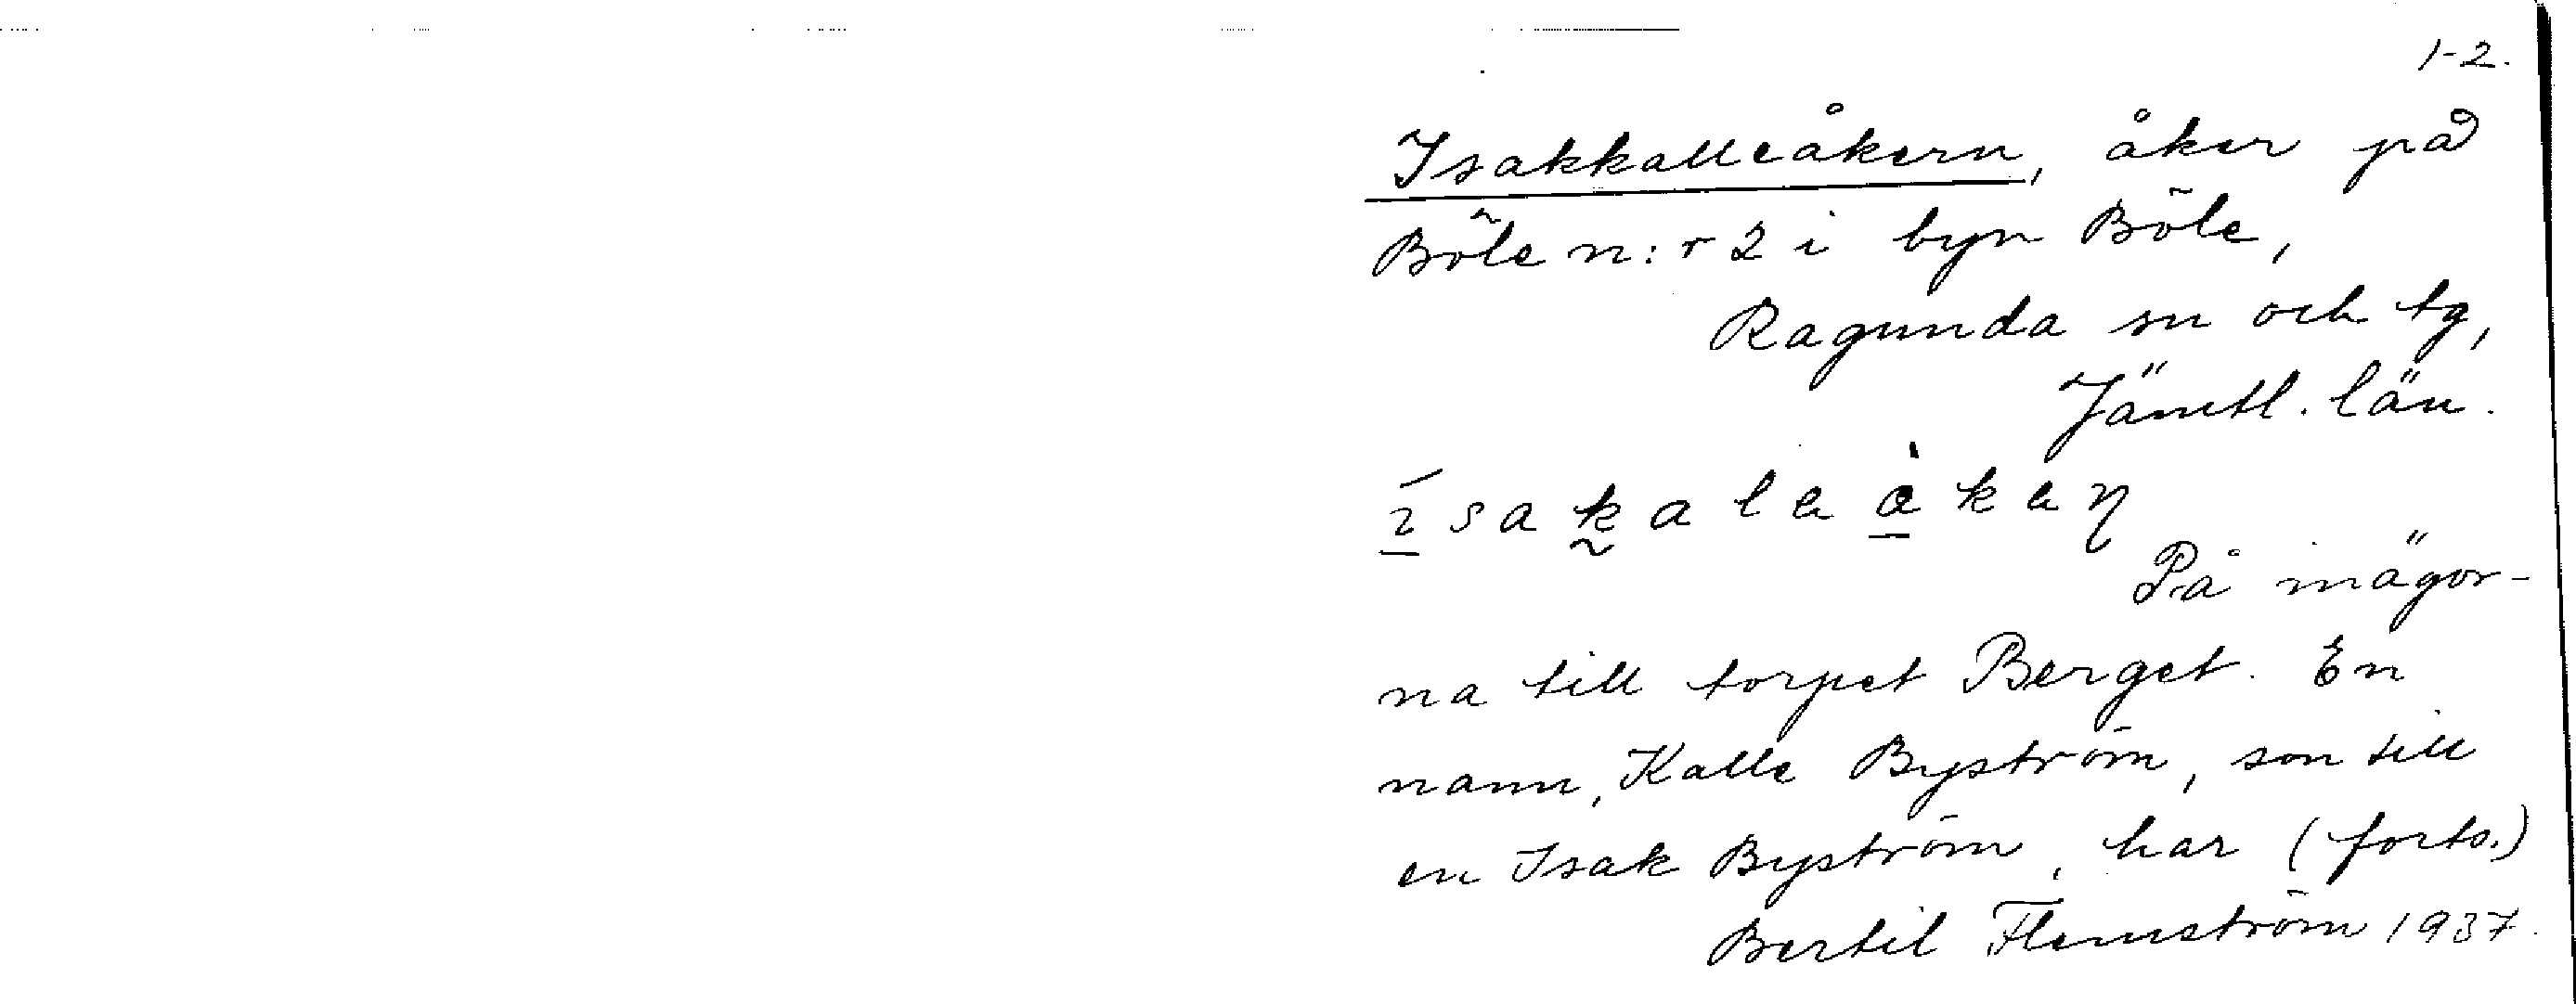 1-2.
Isakkalleåkern, åker på
Böle n:r 2 i byn Böle,
Ragunda sn och tg,
Jämtl. län.
På inägor-
na till torpet Berget. En
mann, Kalle Byström, son till
en Isak Byström, har (forts.)
Bertil Flemström 1937.